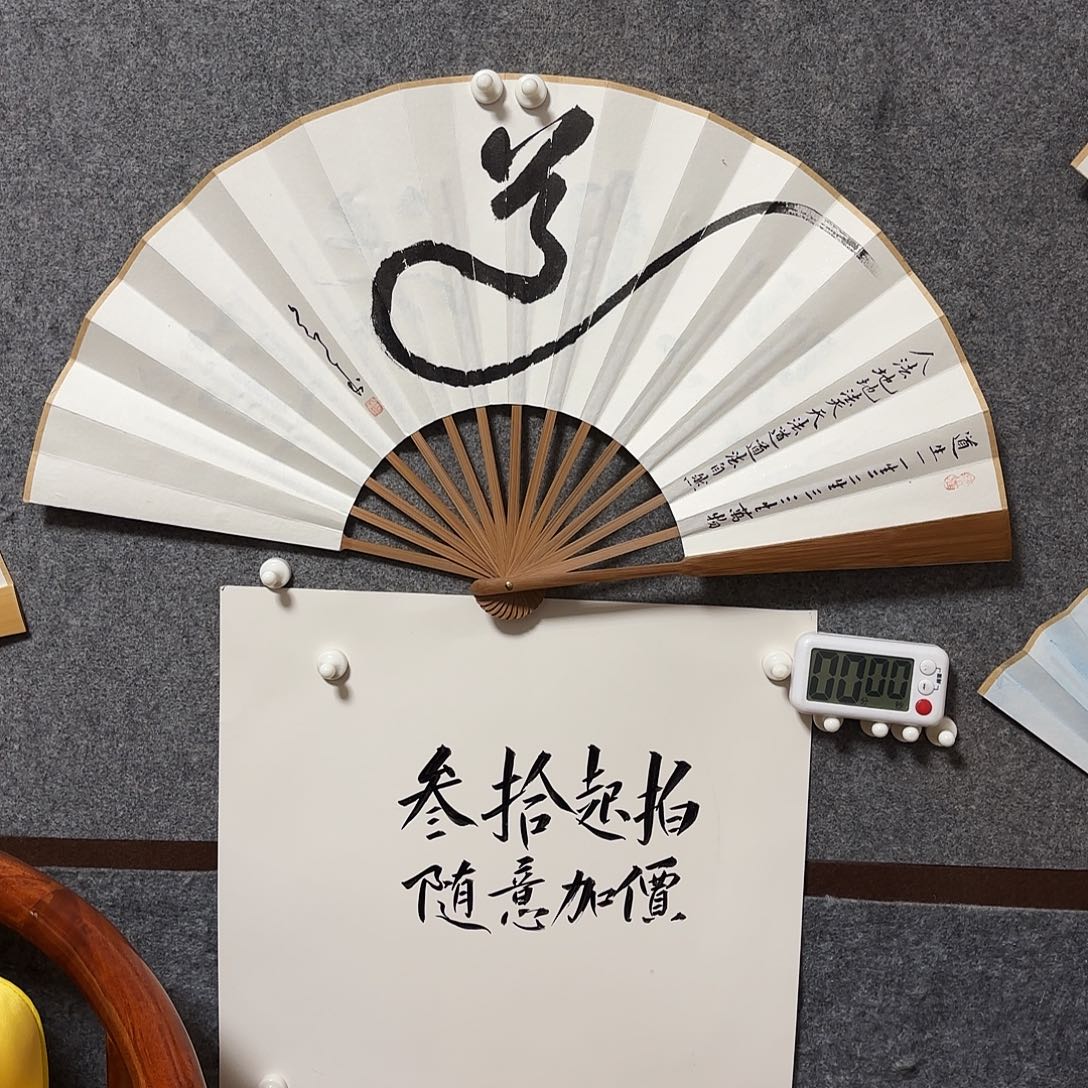 道
道生一一生二二生三三生萬物
人法地地法天天法道道法自然
00:00
叁拾起拍
隨意加價